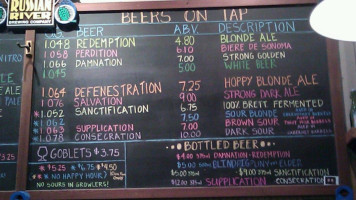 RUSSIAN
RIVER
BEERS ON TAP
BEER ABV. DESCRIPTION
1.048 REDEMPTION 4.80 BLONDE ALE
1.058 PERDITION 6.10 BIERE DE SONOMA
1.066 DAMNATION 7.00 STRONG GOLDEN
1.045 5.00 WHITE BEER
1.064 DEFENESTRATION 7.25 HOPPY BLONDE ALE
1.076 SALVATION 9.00 STRONG DARK ALE
*1.052 SANCTIFICATION 6.75 100% BRETT FERMENTED
*1.062 7.50 SOUR BLONDE
*1.063 SUPPLICATION 7.00 BROWN SOUR
*1.078 CONSECRATION 10.00 DARK SOUR
GOBLETS $3.75
*$5.25 *$6.75 $4.50
NO HAPPY HOUR
NO SOURS IN GROWLERS!
BOTTLED BEER
DAMNATION + REDEMPTION
SANCTIFICATION
SUPPLICATION CONSECRATION